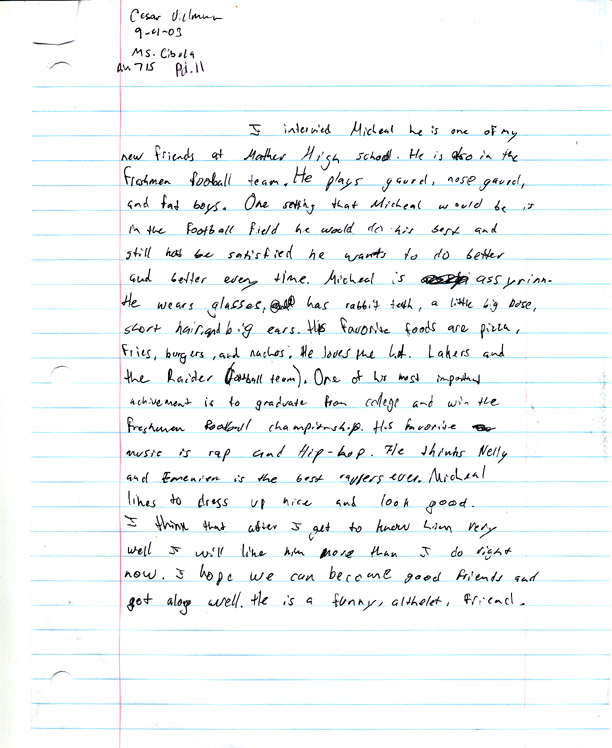 Cesar
9-01-03
Ms. Cibola
Pd. 11
I intervied Micheal he is one of my
new friends at Mather High school. He is also in the
freshmen football team. He plays gaurd, nose gaurd,
and fat boys. One setting that Micheal would be is
in the football field he would do his best and
still not be satisfied he wants to do better
and better every time. Micheal is assyrinn.
He wears glasses, has rabbit teeth, a little big nose,
short hair, and big ears. His favorite foods are pizza,
fries, burgers, and nachos. He loves the L.A. Lakers and
the Raider (football team). One of his most important
achivement is to graduate from college and win the
freshmen football championship. His favorise
music is rap and Hip-hop. He thinks Nelly
and Emenien is the best rappers ever. Micheal
likes to dress up nice and look good.
I think that after I get to know him very
well I will like him more than I do right
now. I hope we can become good friends and
get along well. He is a funny, althelet, friend.